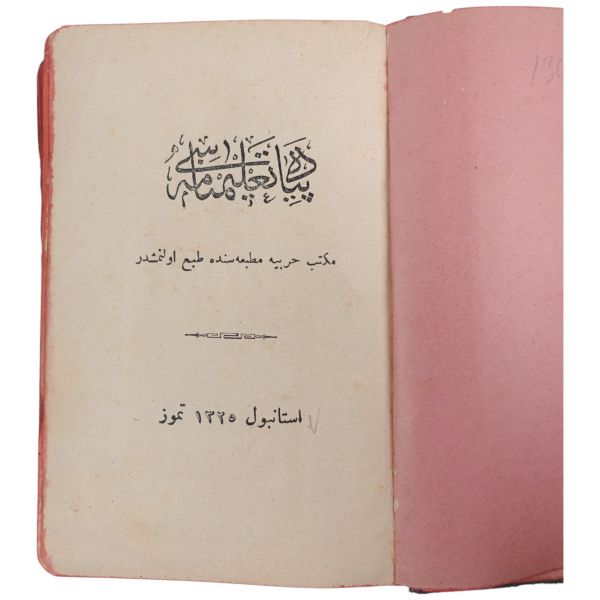 پیاده تعلیمنامه‌سی
مكتب حربیه مطبعه‌سنده طبع اولنمشدر
استانبول ١٣٢٥ تموز